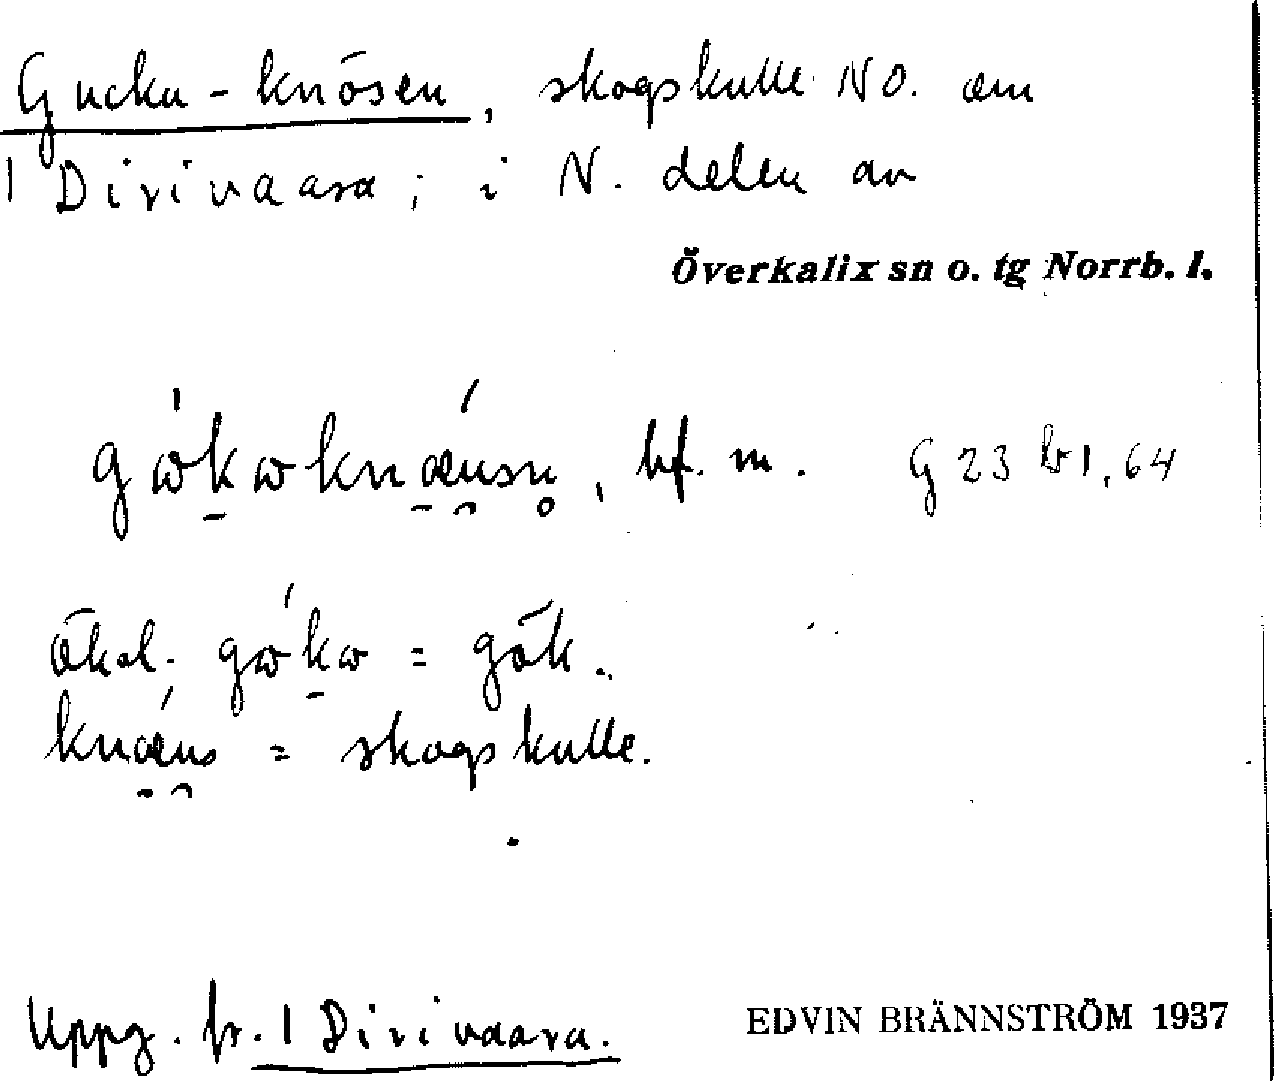 Gucku-knösen, skogskulle NO. om
1 Dirivaara; i N. delen av
Överkalix sn o. tg Norrb. l.
bf. m. G 23 b 1, 64
ökal. = gök.
= skogskulle.
Uppg. fr. 1 Dirivaara.
EDVIN BRÄNNSTRÖM 1937